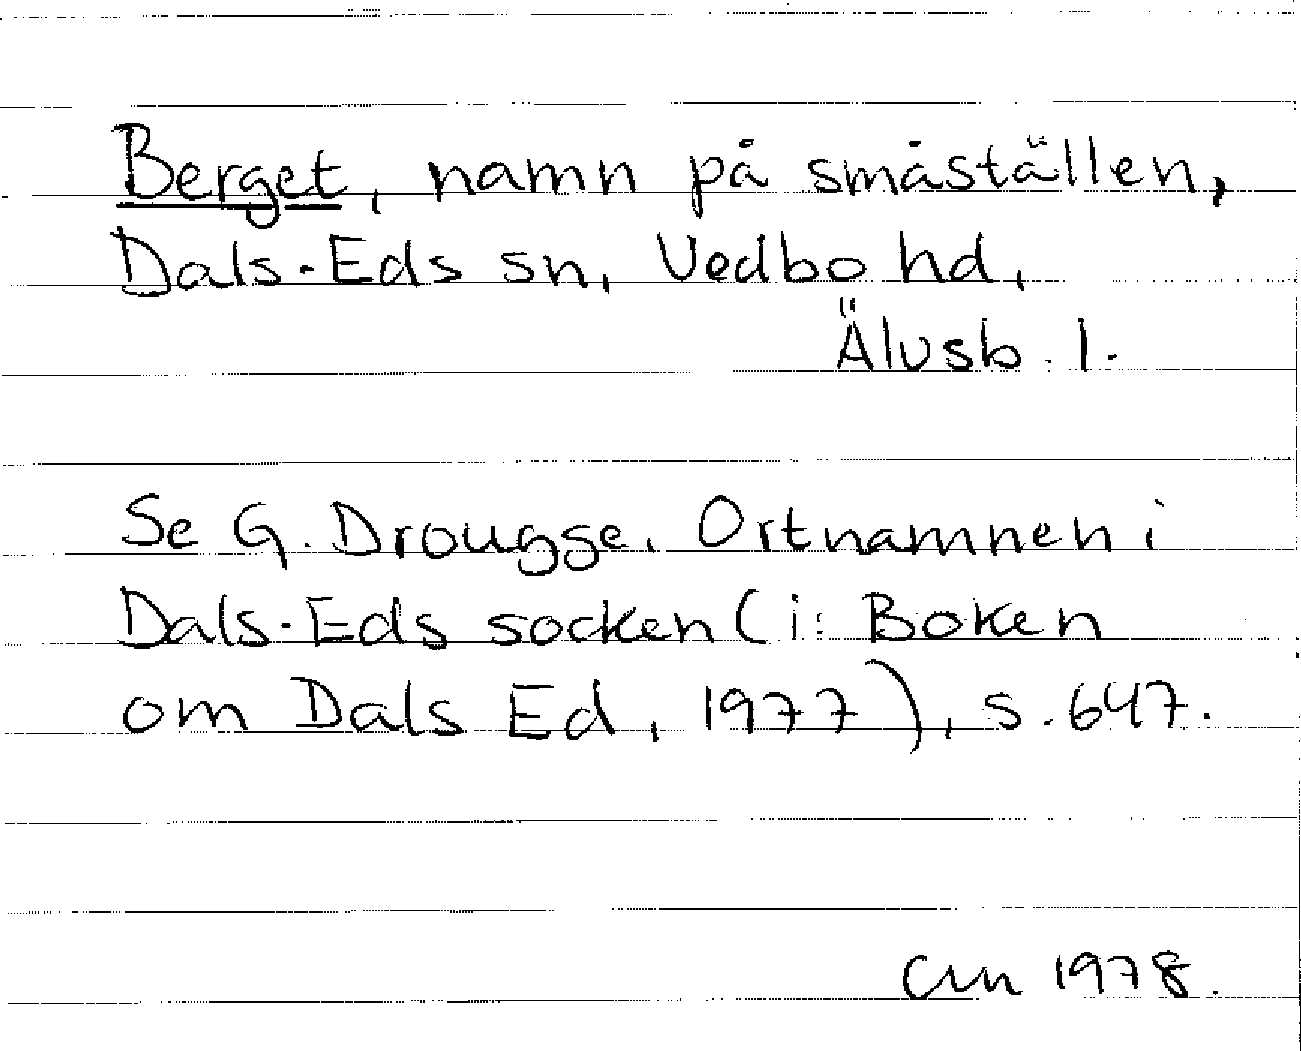 Berget, namn på småställen,
Dals-Eds sn, Vedbo hd,
Älvsb. l.
Se G. Drougge, Ortnamnen i
Dals-Eds socken (i: Boken
om Dals Ed, 1977), s. 647.
1978.